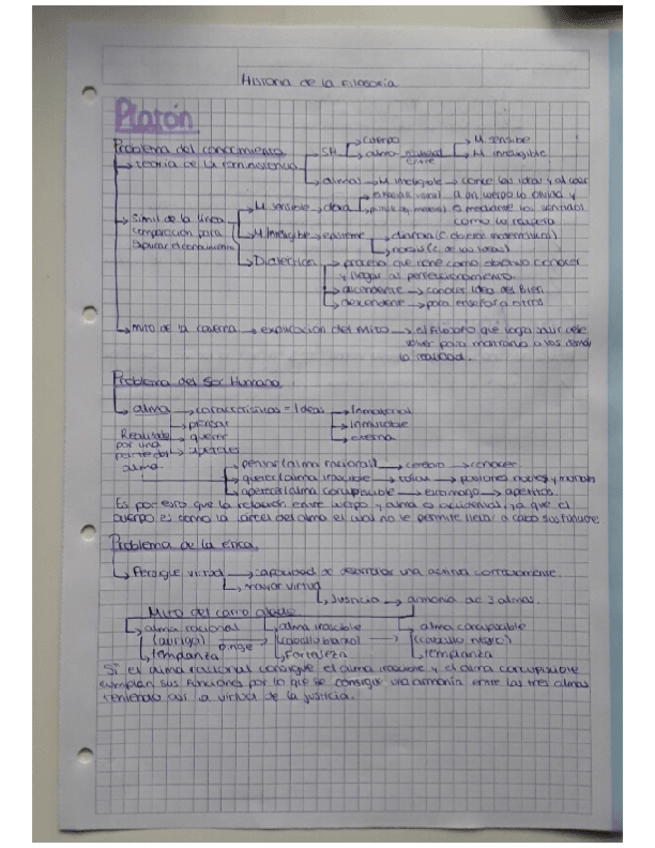 Historia de la Filosofía
Platón
Problema del conocimiento
→ teoría de la reminiscencia → SH → cuerpo → M sensible
→ alma → M inteligible
→ alma → M inteligible → conoce las ideas y al caer
a un cuerpo lo olvida y
mediante los sentidos
como lo recupera
→ Símil de la línea → M sensible → doxa
comparación para → M inteligible → episteme → dianoia (c. objetos matemáticos)
explicar el conocimiento → noesis (c. de las ideas)
→ Dialéctica → proceso que tiene como objetivo conocer
y llegar al perfeccionamiento.
→ ascendente → conocer Idea del Bien
→ descendente → para enseñar a otros
→ mito de la caverna → explicación del Mito → el filósofo que logra salir debe
volver para mostrarla a los demás
la realidad.
Problema del Ser Humano
→ alma → características = Ideas → Inmaterial
→ pensar → Inmutable
Realizada → querer → eterna
por una → apetecer
parte del
alma.
→ pensar (alma racional) → cerebro → conocer
→ querer (alma irascible) → tórax → pasiones nobles y
→ apetecer (alma concupiscible → estómago → apetitos.
Es por esto que la relación entre cuerpo y alma es accidental, ya que el
cuerpo es como la cárcel del alma el cual no le permite llevar a cabo sus funciones
Problema de la ética.
→ Persigue virtud → capacidad de desarrollar una actividad correctamente.
→ mayor virtud
→ Justicia → armonía de 3 almas.
Mito del carro alado
→ alma racional → alma irascible → alma concupiscible
(auriga) dirige → (caballo blanco) → (caballo negro)
→ templanza → fortaleza → templanza
Si el alma racional consigue el alma irascible y el alma concupiscible
cumplan sus funciones por lo que se consigue una armonía entre las tres almas
teniendo así la virtud de la justicia.